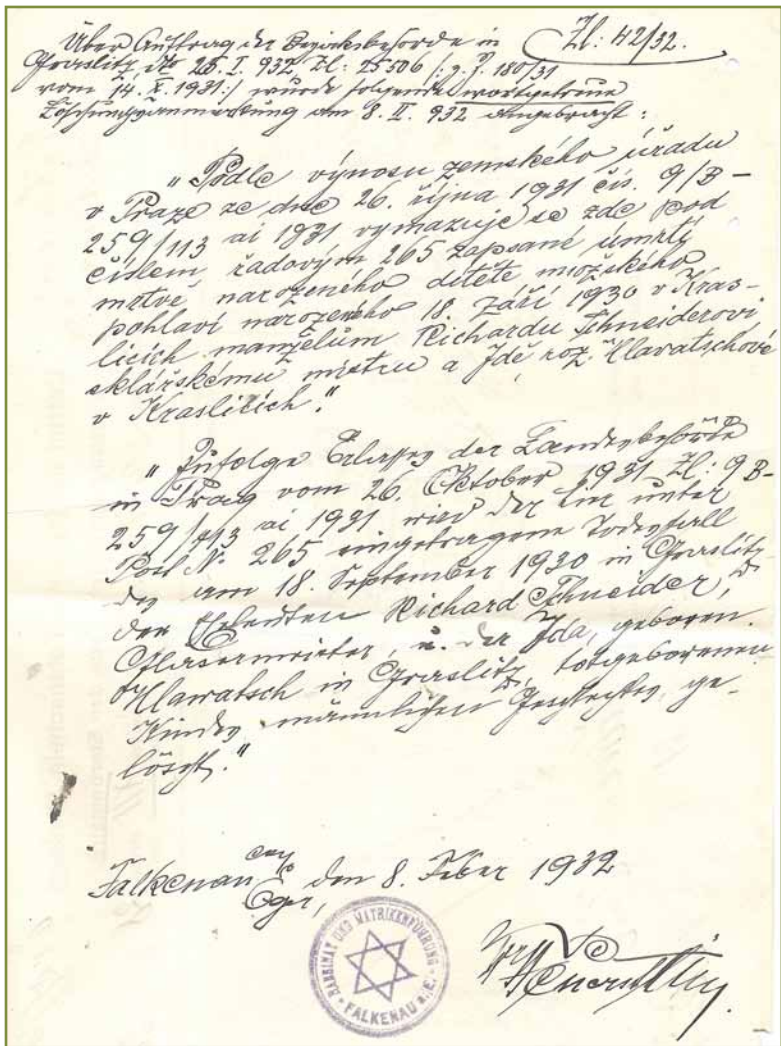 Über Auftrag der Bezirksbehörde in Zl: 42/32.
Graslitz, dto 25. I. 932, Zl: 25506 /: z. Z. 180/31
vom 14. X. 1931:/ wurde folgende wortgetreue
Löschungsanmerkung am 8. II. 932 angebracht:
"Podle výnosu zemského úřadu
v Praze ze dne 26. října 1931 čís. 9/B-
259/113 ai 1931 vymazuje se zde pod
číslem řadovým 265 zapsané úmrtí
mrtvě narozeného dítěte mužského
pohlaví narozeného 18. září 1930 v Kras-
licích manželům Richardu Schneiderovi
sklářskému mistru a Idě, roz. Hlawatschové
v Kraslicích."
"Zufolge Erlasses der Landesbehörde
in Prag vom 26. Oktober 1931 Zl: 9 B-
259/113 ai 1931 wird der hier unter
Post No. 265 eingetragene Todesfall
des am 18. September 1930 in Graslitz
den Eheleuten Richard Schneider,
Glasermeister, u. der Ida, geboren.
Hlawatsch in Graslitz, totgeborenen
Kindes männlichen Geschlechtes, ge-
löscht."
Falkenau a/
Eger, den 8. Feber 1932
RABBINAT UND MATRIKENFÜHRUNG
FALKENAU a. E.